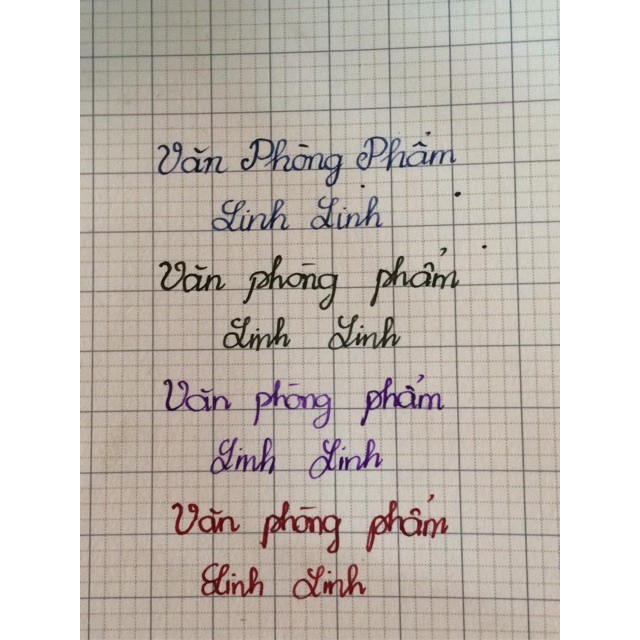 Văn Phòng Phẩm
Linh Linh
Văn phòng phẩm
Linh Linh
Văn phòng phẩm
Linh Linh
Văn phòng phẩm
Linh Linh